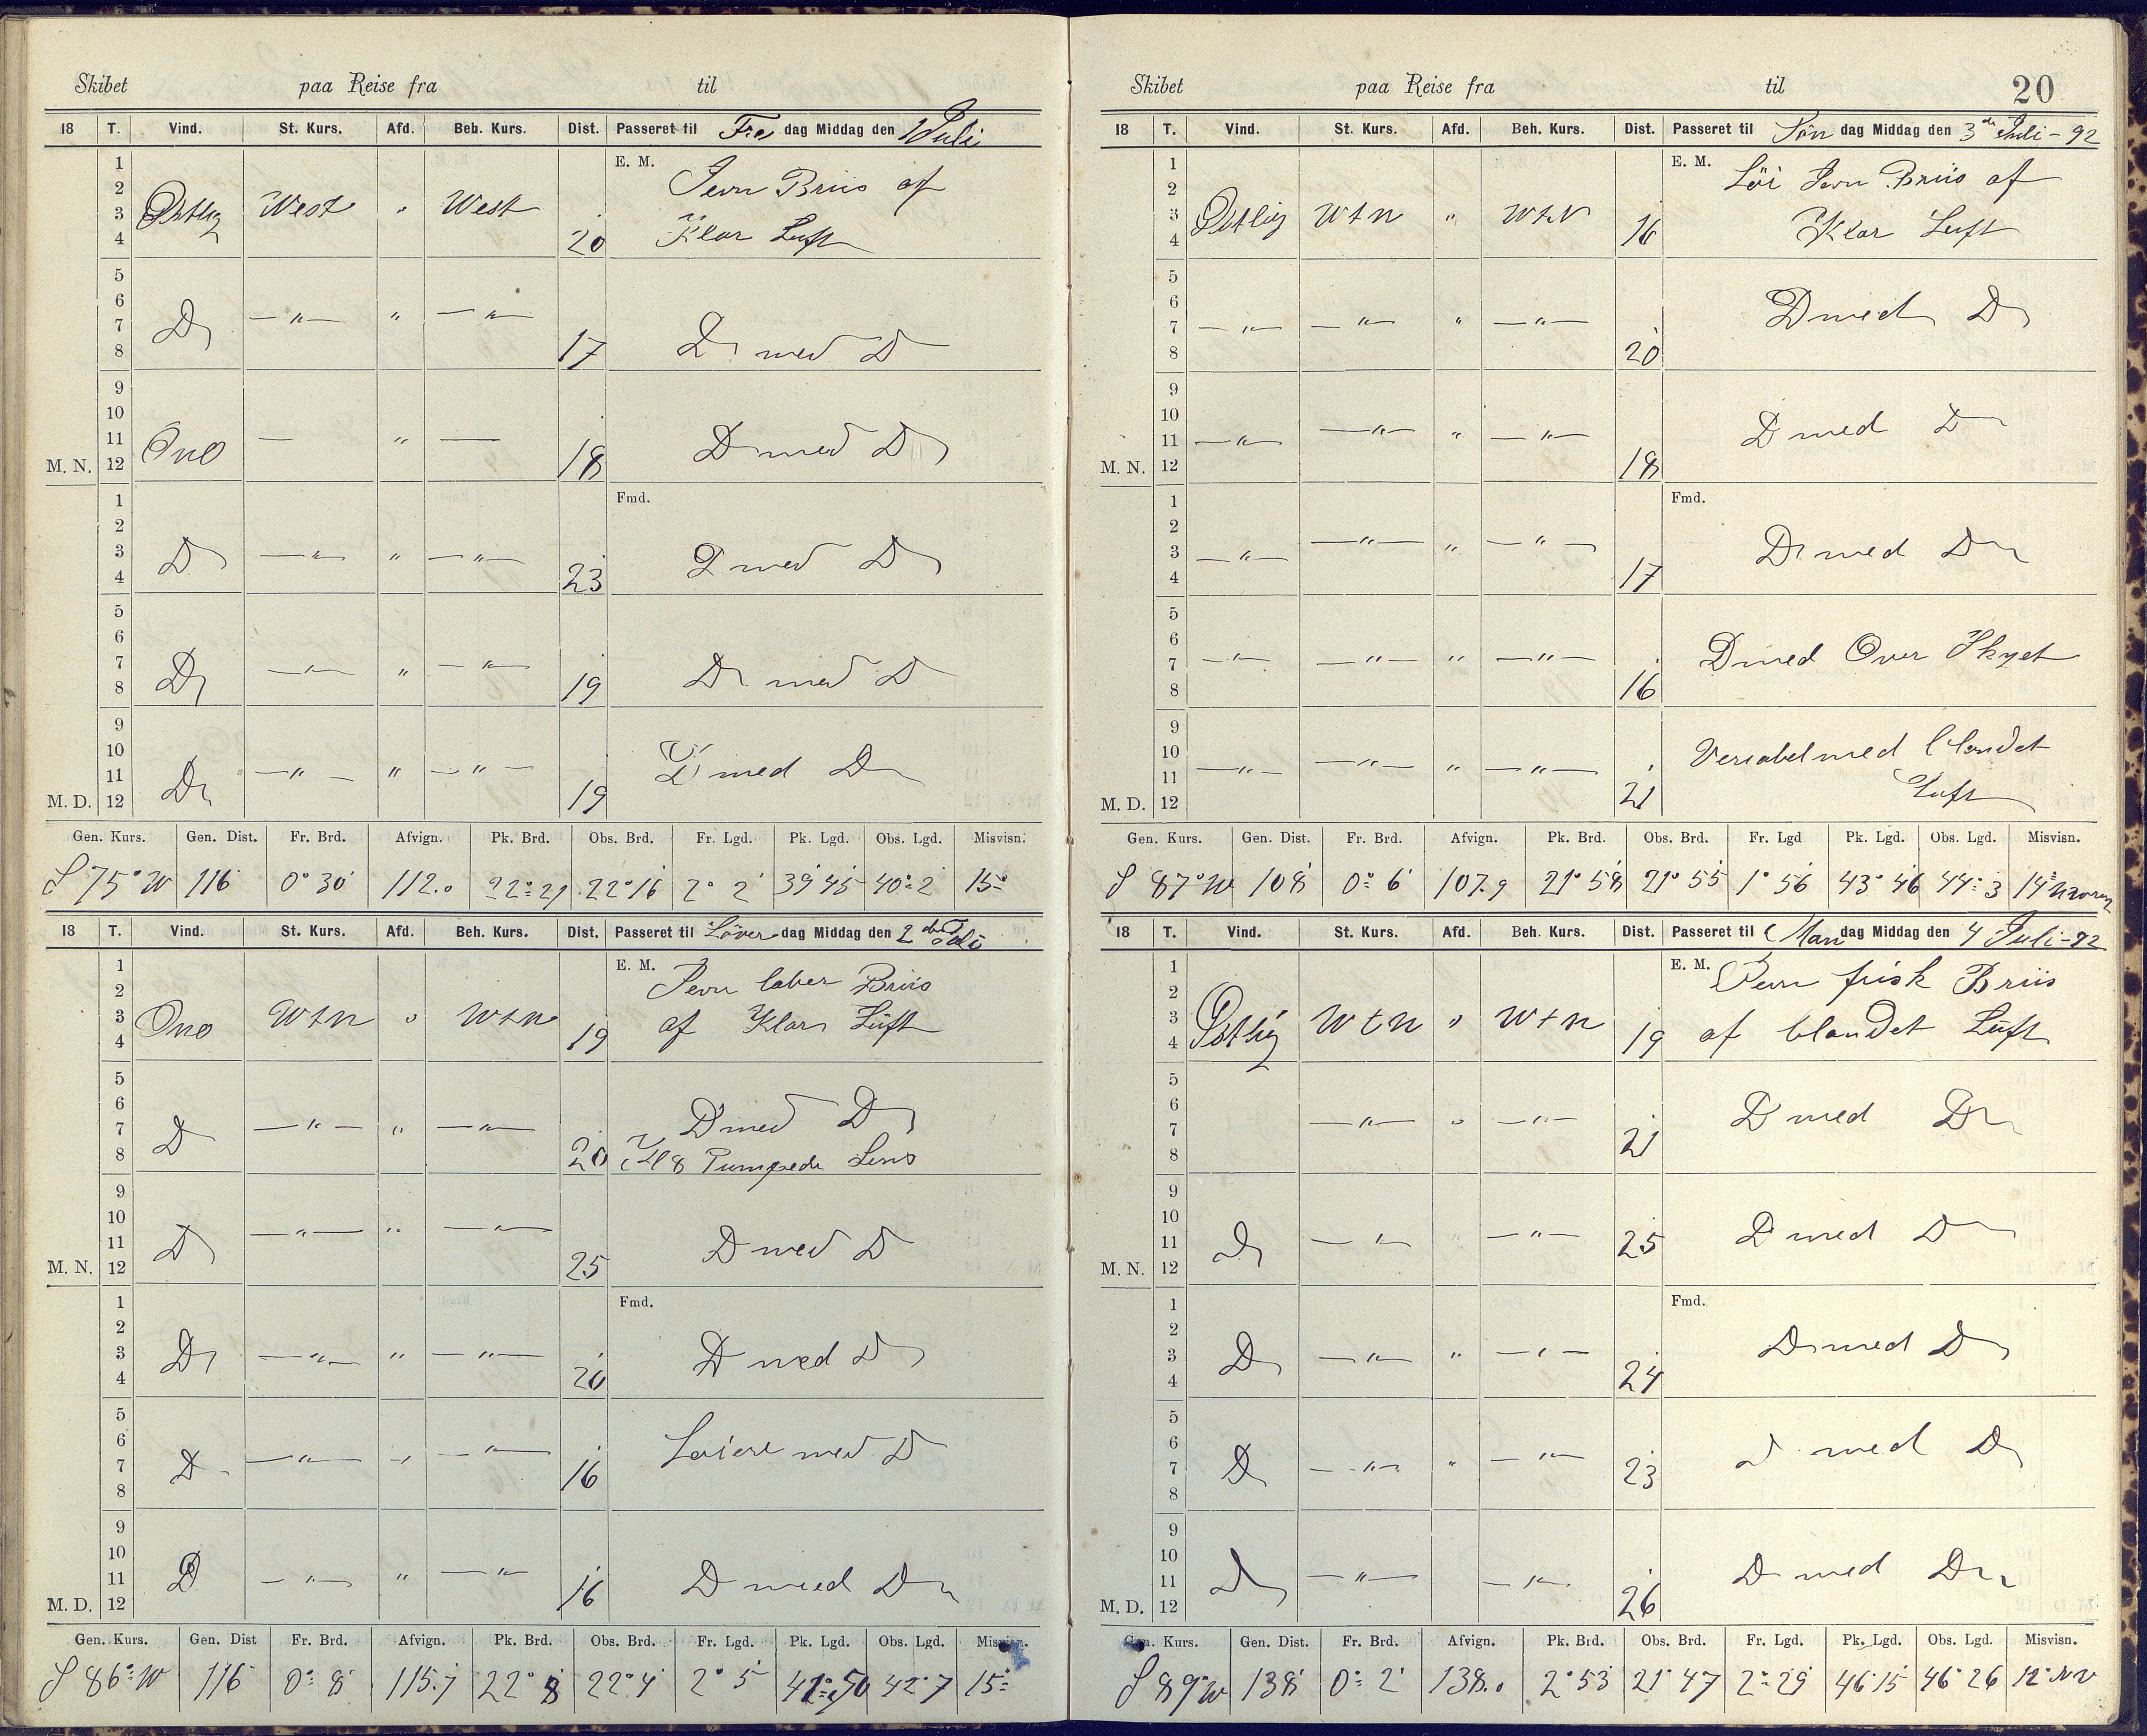 Skibet paa Reise fra til
18 T. Vind. St. Kurs. Afd. Beh. Kurs. Dist. Passeret til Fre dag Middag den 1 Juli
1 E. M. Jevn Briis af
2
3 Østlig West " West
4 20 Klar Luft
5
6
7 Do —"— " —"—
8 17 Do med Do
9
10
11 Ono — " —
M. N. 12 18 D med Do
1 Fmd.
2
3 D —"— " —"—
4 23 D med D
5
6
7 Do —"— " —"—
8 19 D med D
9
10
11 Do —"— " —"— D med D
M. D. 12 19
Gen. Kurs. Gen. Dist. Fr. Brd. Afvign. Pk. Brd. Obs. Brd. Fr. Lgd. Pk. Lgd. Obs. Lgd. Misvisn.
S 75° W 116 0° 30' 112.0 22° 21 22° 16 2° 2' 39° 45 40° 2' 15°
18 T. Vind. St. Kurs. Afd. Beh. Kurs. Dist. Passeret til Löver dag Middag den 2 den Juli
1 E. M. Jevn laber Briis
2
3 Ono W t n " W t n
4 19 af Klar Luft
5
6
7 D —"— " —"— D med D
8 20 Kl 8 Pumpede Lens
9
10
11 D —"— " —"—
M. N. 12 25 D med D
1 Fmd.
2
3 D —"— " —"— D med D
4 20
5
6
7 D —"— " —"— Løiere med D
8 16
9
10
11 D —"— " —"—
M. D. 12 16 D med D
Gen. Kurs. Gen. Dist Fr. Brd. Afvign. Pk. Brd. Obs. Brd. Fr. Lgd. Pk. Lgd. Obs. Lgd. Misvisn.
S 86° W 116 0° 8' 115.7 22° 8 22° 4' 2° 5' 50 42° 7 15°
Skibet paa Reise fra til 20
18 T. Vind. St. Kurs. Afd. Beh. Kurs. Dist. Passeret til Søn dag Middag den 3 de Juli - 92
1 E. M. Löi Jevn Briis af
2
3 Østlig W t n " W t N
4 16 Klar Luft
5
6
7 —"— —"— " —"— D med D
8 20
9
10
11 —"— —"— " —"— D med D
M. N. 12 18
1 Fmd.
2
3 —"— —"— " —"— D med D
4 17
5
6
7 —"— —"— " —"— D med Over Skyet
8 16
9
10
11 —"— —"— " —"— Veriabel med blandet
M. D. 12 21 Luft
Gen. Kurs. Gen. Dist. Fr. Brd. Afvign. Pk. Brd. Obs. Brd. Fr. Lgd Pk. Lgd. Obs. Lgd. Misvisn.
S 87° W 108 0° 6' 107.9 21° 58 21° 55 1° 56 43° 46 44° 3 14°
18 T. Vind. St. Kurs. Afd. Beh. Kurs. Dist. Passeret til Man dag Middag den 4 Juli - 92
1 E. M. Jevn frisk Briis
2
3 Østlig W t n " W t n
4 19 af blandet Luft
5
6
7 —"— " —"— D med D
8 21
9
10
11 D —"— —"— 25 D med D
M. N. 12
1 Fmd.
2
3 D —"— " —"— D med D
4 24
5
6
7 D —"— " —"— 23 D med D
8
9
10
11 D —"— —"— D med D
M. D. 12 26
Gen. Kurs. Gen. Dist. Fr. Brd. Afvign. Pk. Brd. Obs. Brd. Fr. Lgd. Pk. Lgd. Obs. Lgd. Misvisn.
S 89° W 138 0° 2' 138.0 2° 53 21° 47 2° 29 46° 15 46° 26 12° NV